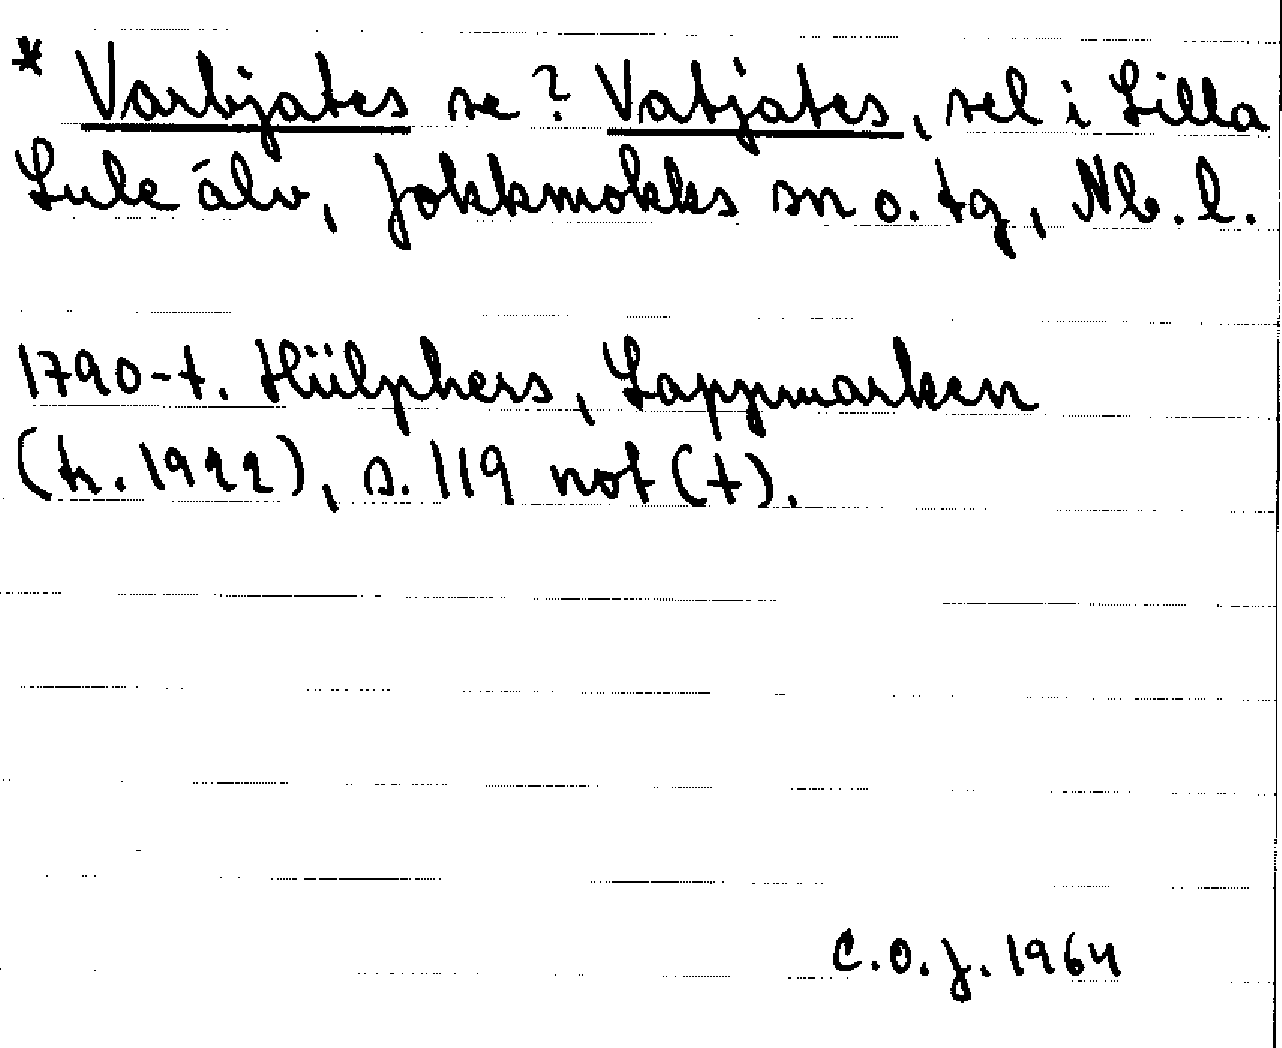 * Varbjates se? Vatjates, sel i Lilla
Lule älv, Jokkmokks sn o. tg, Nb. l.
1790-t. Hülphers, Lappmarken
(tr. 1922), s. 119 not (t).
C.O.J. 1964